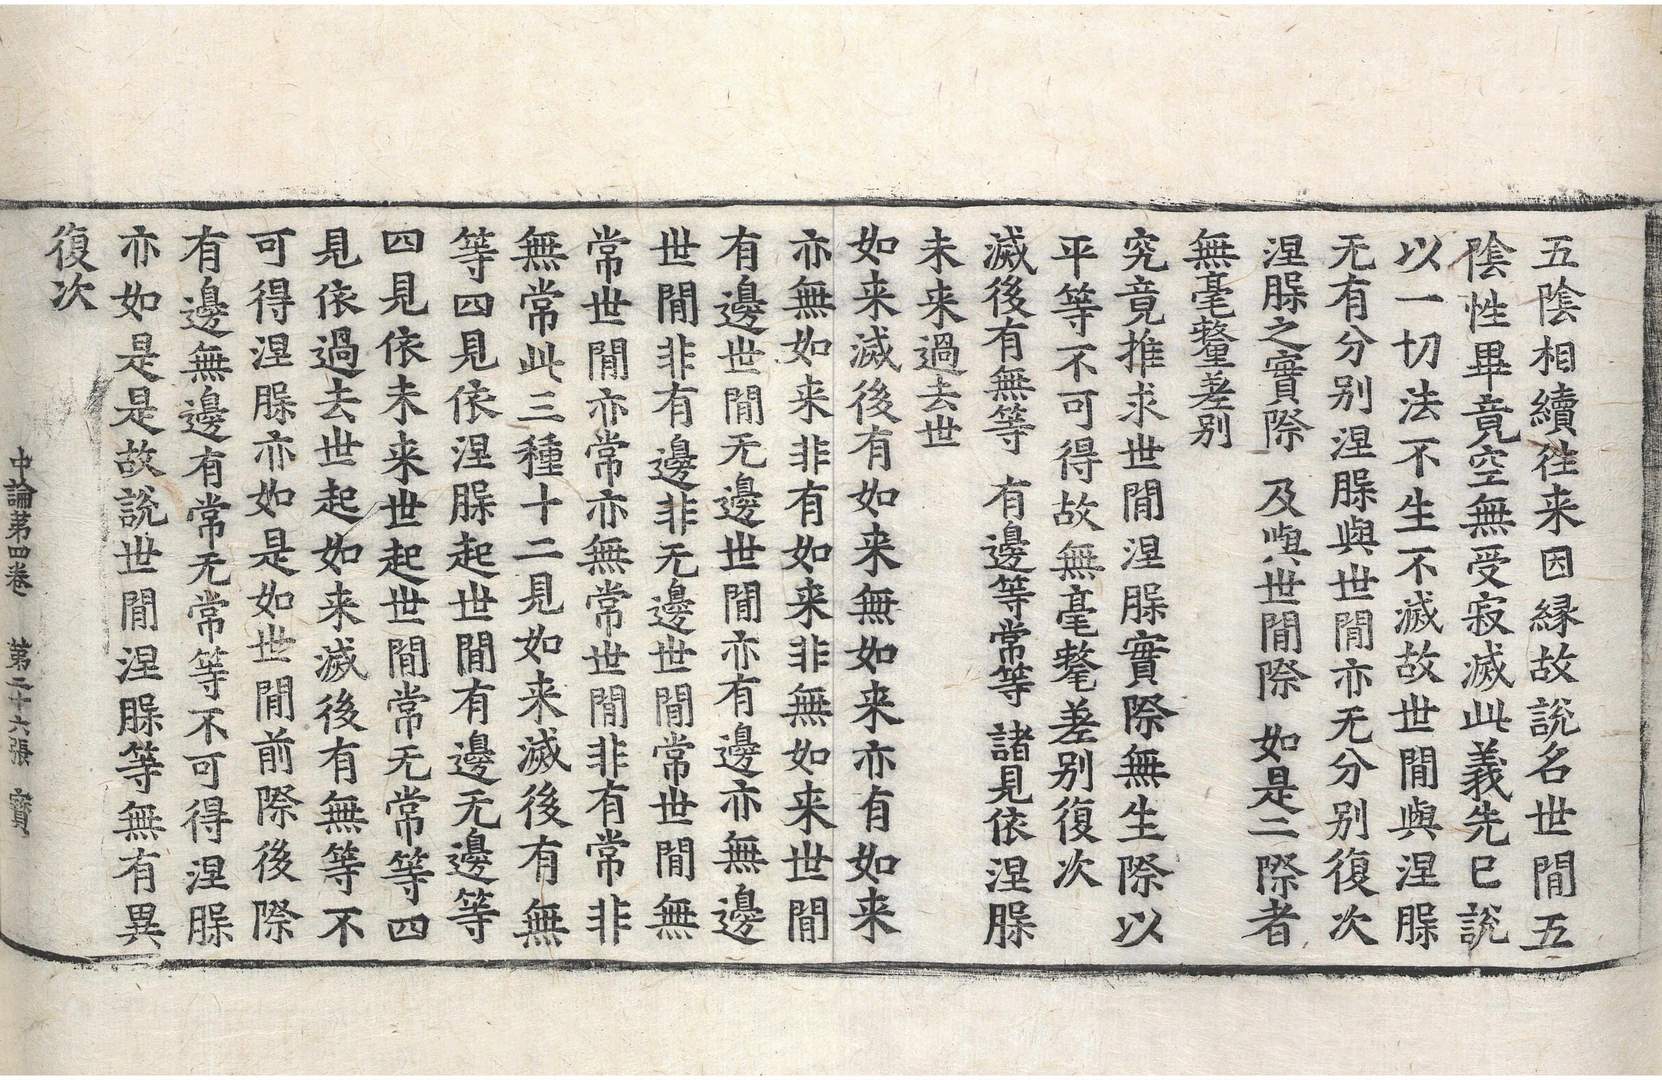 五陰相續往来因縁故說名世間五
陰性畢竟空無受寂滅此義先已說
以一切法不生不滅故世間與涅槃
无有分別涅槃與世間亦无分別復次
涅槃之實際 及與世間際 如是二際者
無毫氂差別
究竟推求世間涅槃實際無生際以
平等不可得故無毫氂差別復次
滅後有無等 有邊等常等 諸見依涅槃
未来過去世
如来滅後有如来無如来亦有如来
亦無如来非有如来非無如来世間
有邊世間无邊世間亦有邊亦無邊
世間非有邊非无邊世間常世間無
常世間亦常亦無常世間非有常非
無常此三種十二見如来滅後有無
等四見依涅槃起世間有邊无邊等
四見依未来世起世間常无常等四
見依過去世起如来滅後有無等不
可得涅槃亦如是如世間前際後際
有邊無邊有常无常等不可得涅槃
亦如是是故說世間涅槃等無有異
復次
中論第四卷 第二十六張 寶